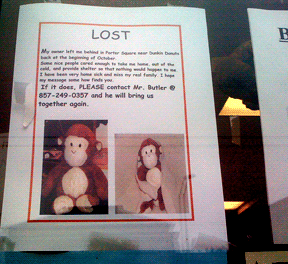 LOST
My owner left me behind in Porter Square near Dunkin Donuts
back at the beginning of October.
Some nice people cared enough to take me home, out of the
cold, and provide shelter so that nothing would happen to me.
I have been very home sick and miss my real family. I hope
my message some how finds you.
If it does, PLEASE contact Mr. Butler @
857-249-0357 and he will bring us
together again.
B